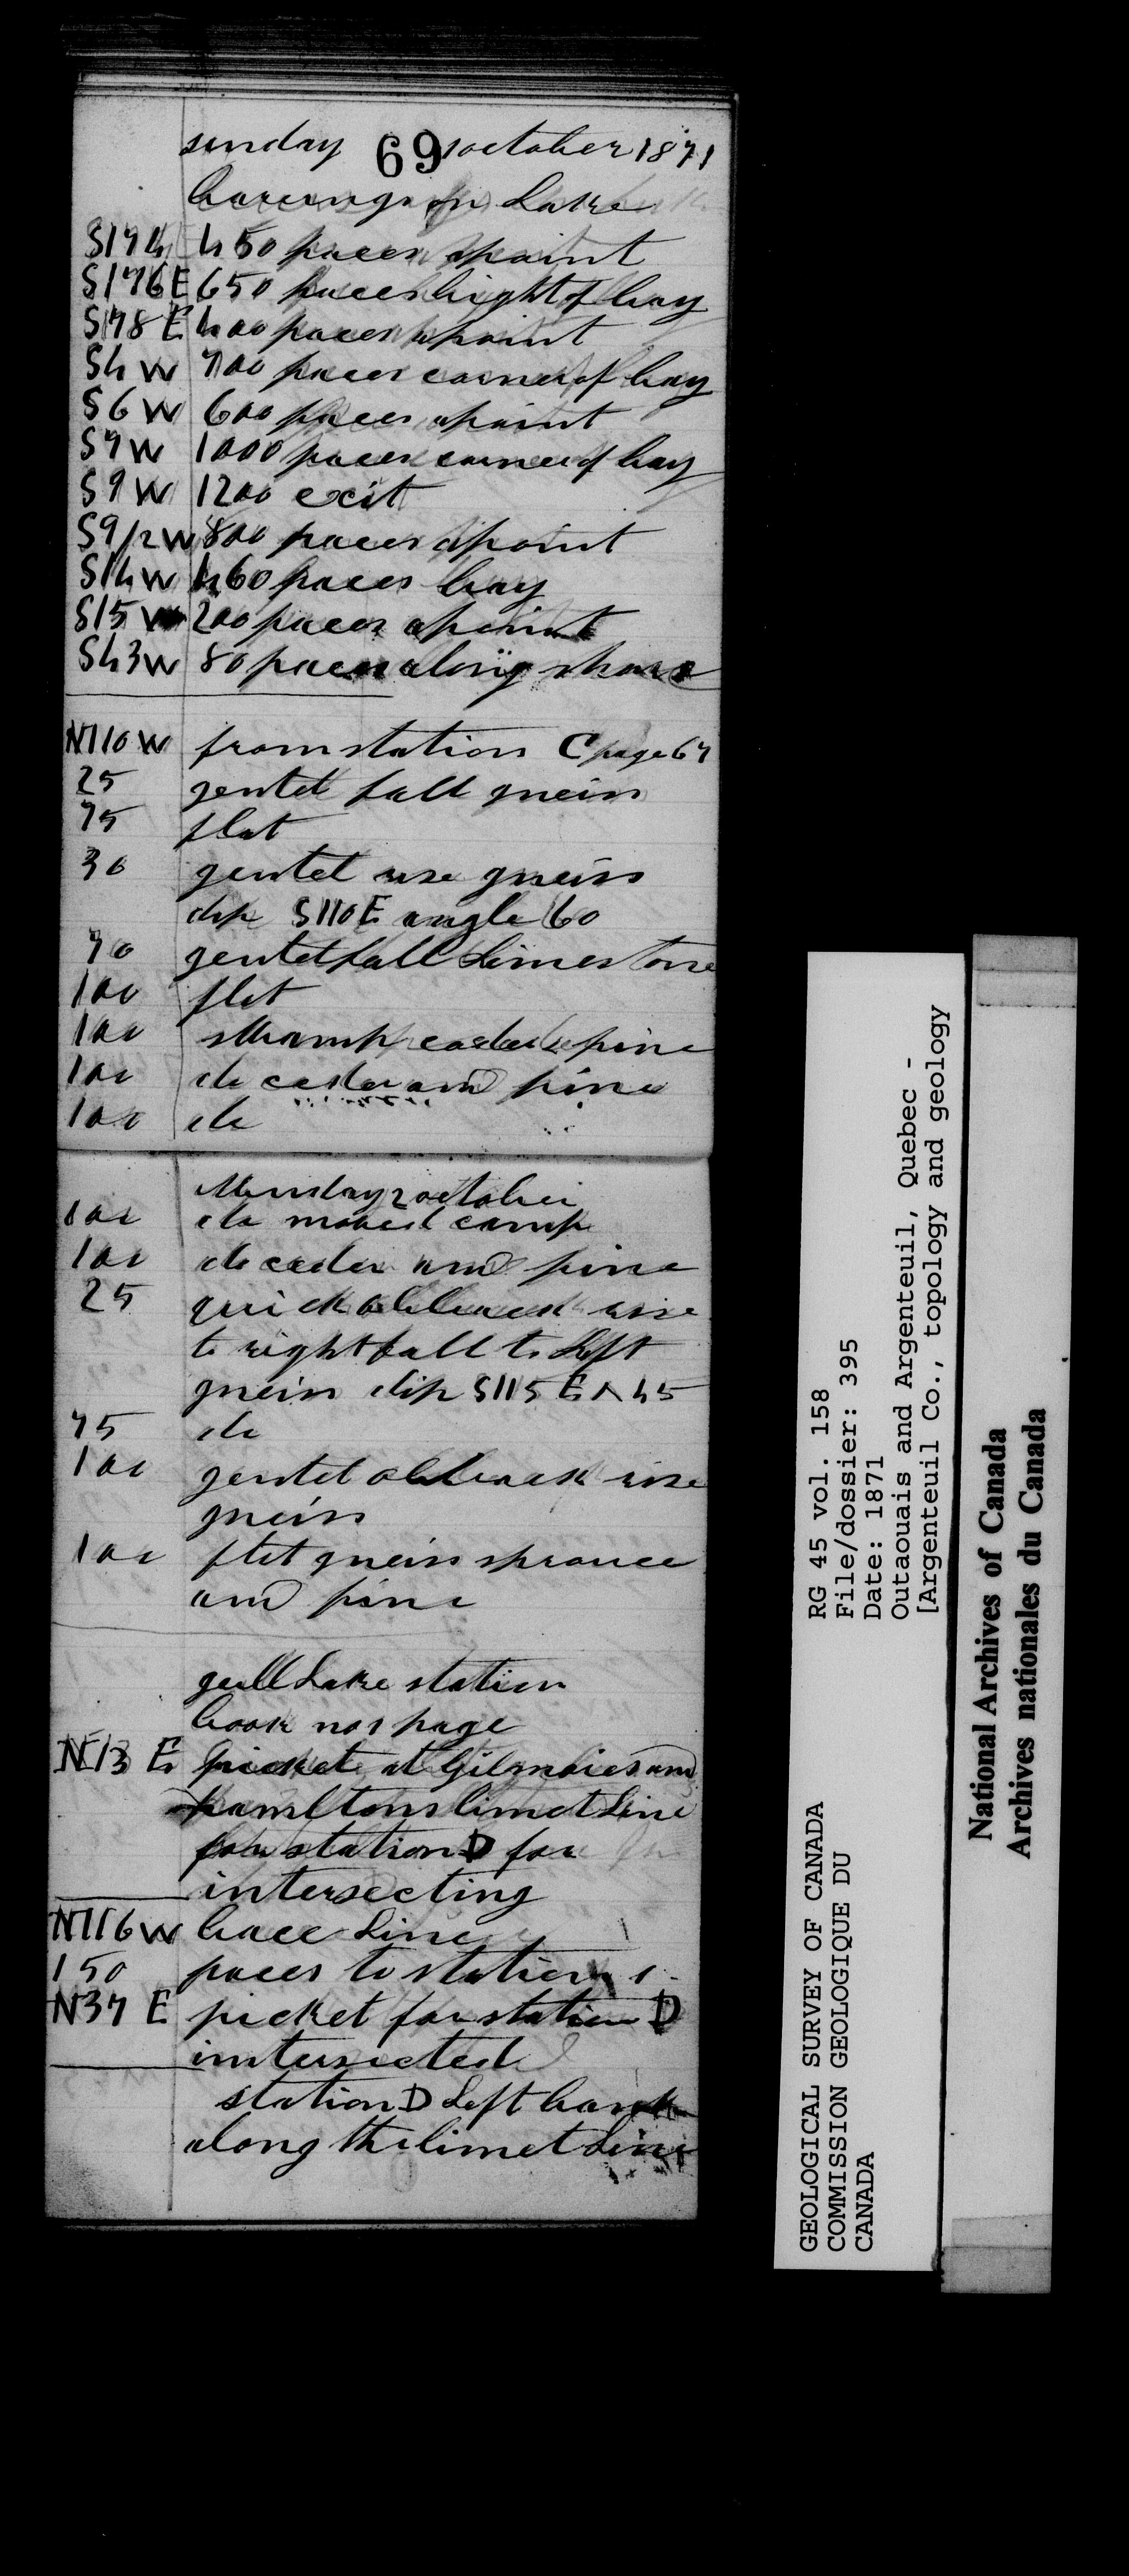 sunday 69 1 october 1871
bearings on Lake
S174 450 paces apoint
S176E 650 paces hight of bay
S178 E 400 paces apoint
S4 W 700 paces corner of bay
S6 W 600 paces apoint
S7W 1000 paces corner of bay
S9 W 1200 exit
S9/2W 800 paces apoint
S14W 460 paces bay
S15 W 200 paces apoint
S43W 80 paces along shore
N110 W from station C page 67
25 gentel fall gneiss
75 flat
30 gentel rise gneiss
dip S110E angle 60
70 gentel fall Limestone
100 flat
100 swamp ceder pine
100 do ceder and pine
100 do
Munday 2 october
100 do moved camp
100 do ceder and pine
25 quick obleack rise
to right fall to Left
gneiss dip S115 E ^ 45
75 do
100 gentel obleack rise
gneiss
100 flat gneiss sprouce
and pine
gull Lake station
book no 1 page
N13 E picket at Gilmoies and
hamltons limet Line
for station D for
intersecting
N116W bace Line
150 paces to station 1
N37 E picket for station D
intersected
station D Left bank
along the limet Line
GEOLOGICAL SURVEY OF CANADA
COMMISSION GEOLOGIQUE DU
CANADA
RG 45 vol. 158
File/dossier: 395
Date: 1871
Outaouais and Argenteuil, Quebec -
[Argenteuil Co., topology and geology
National Archives of Canada
Archives nationales du Canada